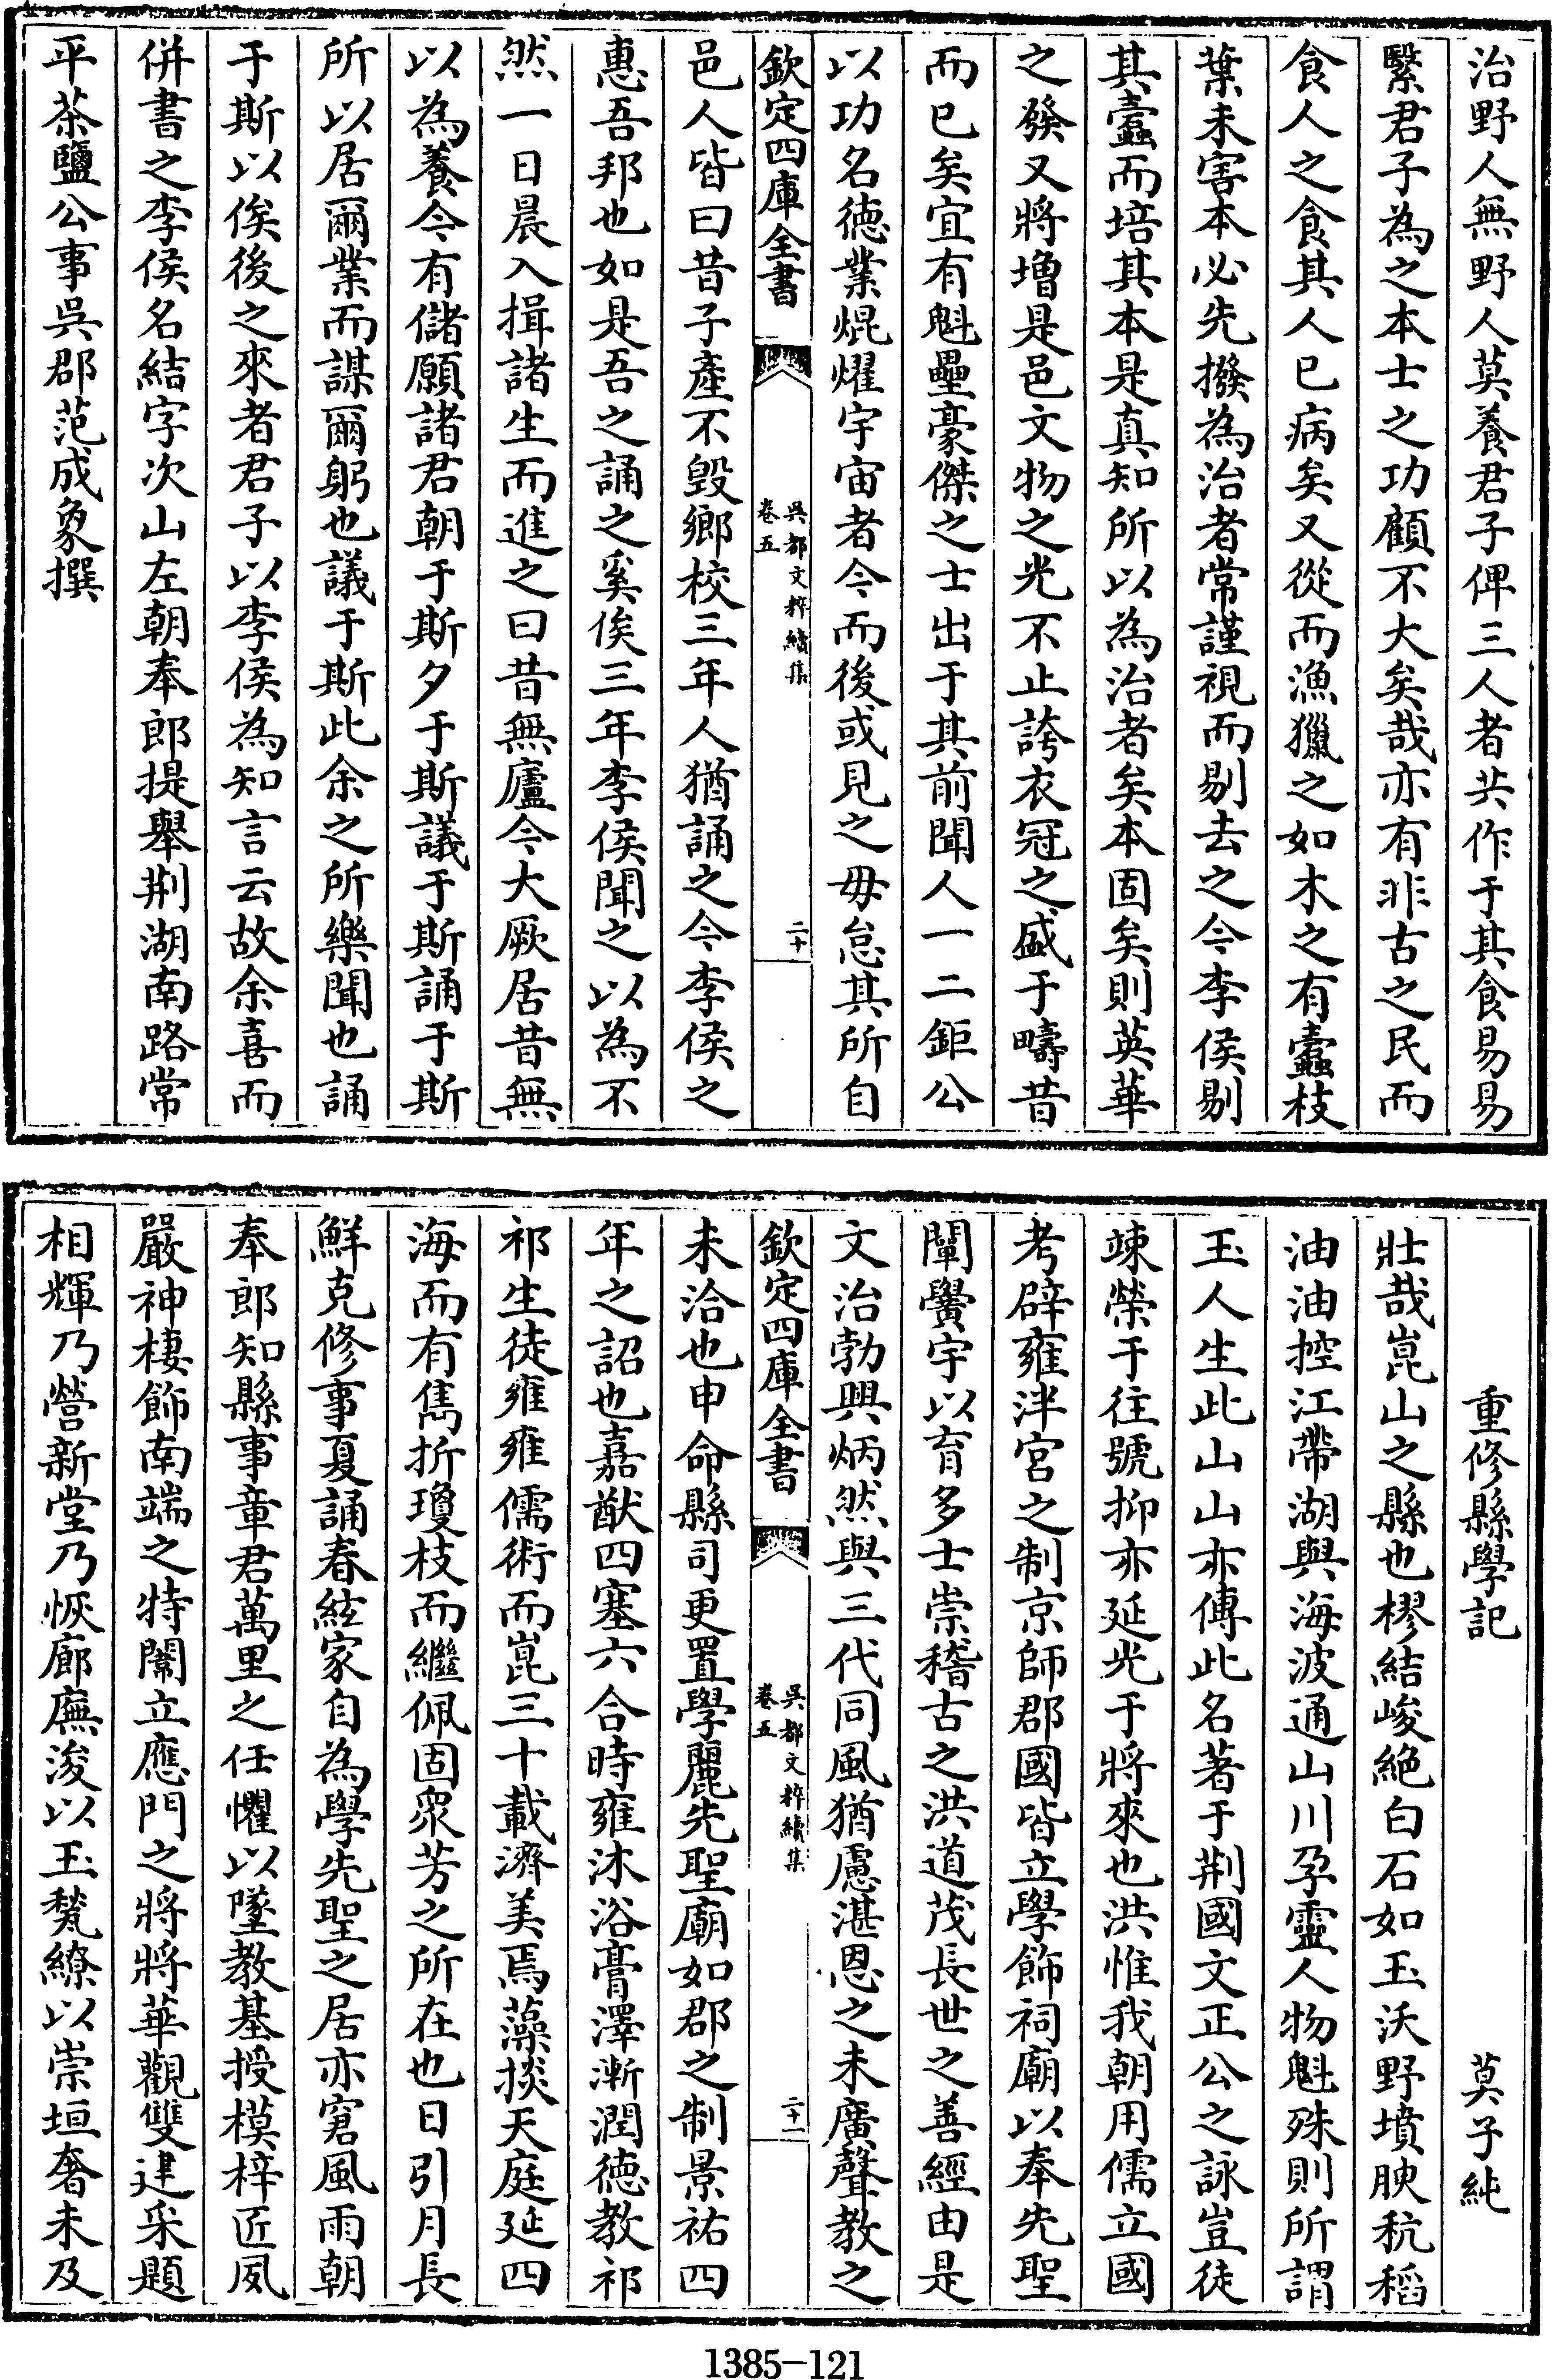 治野人無野人莫養君子俾三人者共作于其食易易
繄君子為之本士之功顧不大矣哉亦有非古之民而
食人之食其人已病矣又從而漁獵之如木之有蠹枝
葉未害本必先撥為治者常謹視而剔去之今李侯剔
其蠹而培其本是真知所以為治者矣本固矣則英華
之發又將增是邑文物之光不止誇衣冠之盛于疇昔
而已矣宜有魁壘豪傑之士出于其前聞人一二鉅公
以功名德業焜燿宇宙者今而後或見之毋怠其所自
欽定四庫全書
吳都文粹續集
卷五
二十
邑人皆曰昔子產不毀鄉校三年人猶誦之今李侯之
惠吾邦也如是吾之誦之奚俟三年李侯聞之以為不
然一日晨入揖諸生而進之曰昔無廬今大厥居昔無
以為養今有儲願諸君朝于斯夕于斯議于斯誦于斯
所以居爾業而謀爾躬也議于斯此余之所樂聞也誦
于斯以俟後之來者君子以李侯為知言云故余喜而
併書之李侯名結字次山左朝奉郎提舉荆湖南路常
平茶鹽公事吳郡范成象撰
重修縣學記 莫子純
壯哉崑山之縣也樛結峻絶白石如玉沃野墳腴秔稻
油油控江帶湖與海波通山川孕靈人物魁殊則所謂
玉人生此山山亦傳此名著于荆國文正公之詠豈徒
竦榮于往號抑亦延光于將來也洪惟我朝用儒立國
考辟雍泮宮之制京師郡國皆立學飾祠廟以奉先聖
闡黌宇以育多士崇稽古之洪道茂長世之善經由是
文治勃興炳然與三代同風猶慮湛恩之未廣聲教之
欽定四庫全書
吳都文粹續集
卷五
二十一
未洽也申命縣司更置學麗先聖廟如郡之制景祐四
年之詔也嘉猷四塞六合時雍沐浴膏澤漸潤德教祁
祁生徒雍雍儒術而崑三十載濟美焉藻掞天庭延四
海而有雋折瓊枝而繼佩固衆芳之所在也日引月長
鮮克修事夏誦春絃家自為學先聖之居亦窘風雨朝
奉郎知縣事章君萬里之任懼以墜教基授模梓匠夙
嚴神棲飾南端之特闈立應門之將將華觀雙建采題
相輝乃營新堂乃恢廊廡浚以玉甃繚以崇垣奢未及
1385-121